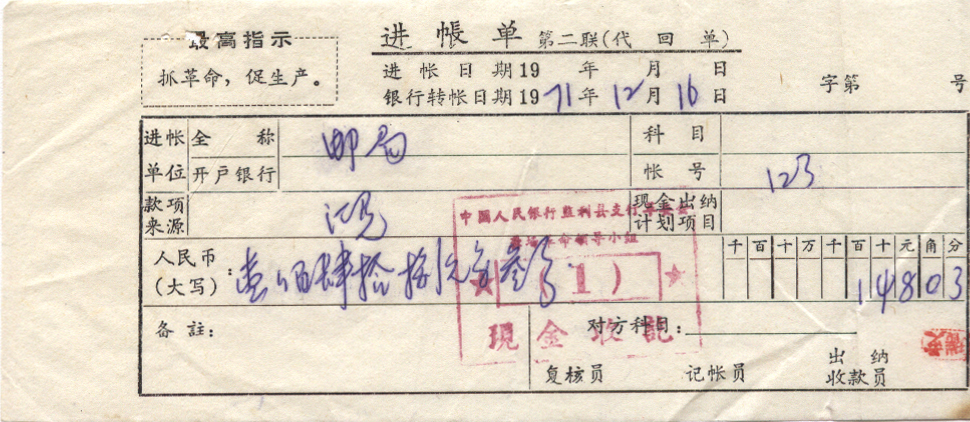 最高指示
抓革命，促生产。
进帐单 第二联(代回单)
进帐日期19 年 月 日
银行转帐日期1971年12月16日
字第 号
进帐单位 全称 邮局 科目
开户银行 帐号 123
款项来源 现金出纳计划项目
中国人民银行监利县支行
革命领导小组
(1)
现金收讫
人民币(大写)： 壹佰肆拾捌元零叁分
千百十万千百十元角分
14803
备註： 对方科目：
复核员 记帐员 出纳收款员